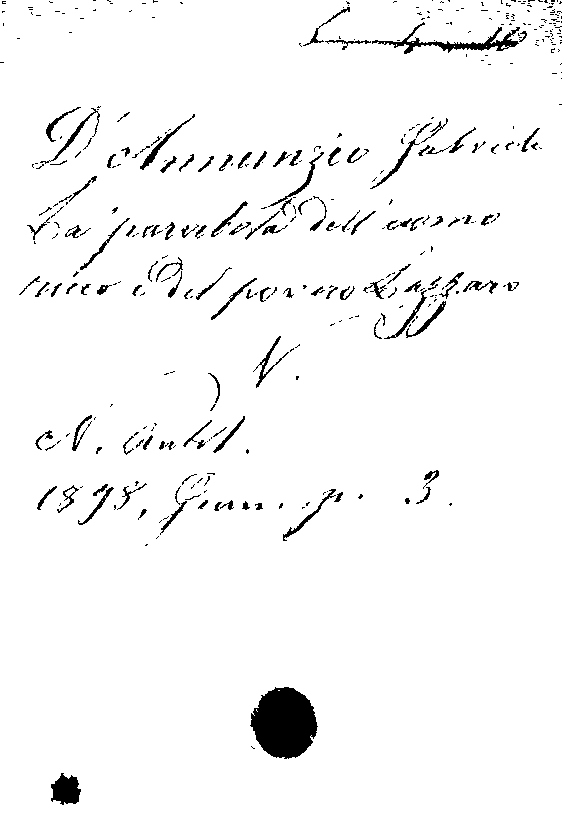 D'Annunzio Gabriele
La parabola dell'uomo
ricco e del povero Lazzaro
V.
N. Antol.
1898, Genn. p. 3.